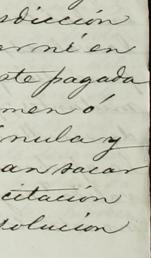 sdicción
orné en
ste pagada
men ó
ínula y
an sacar
citación
solución